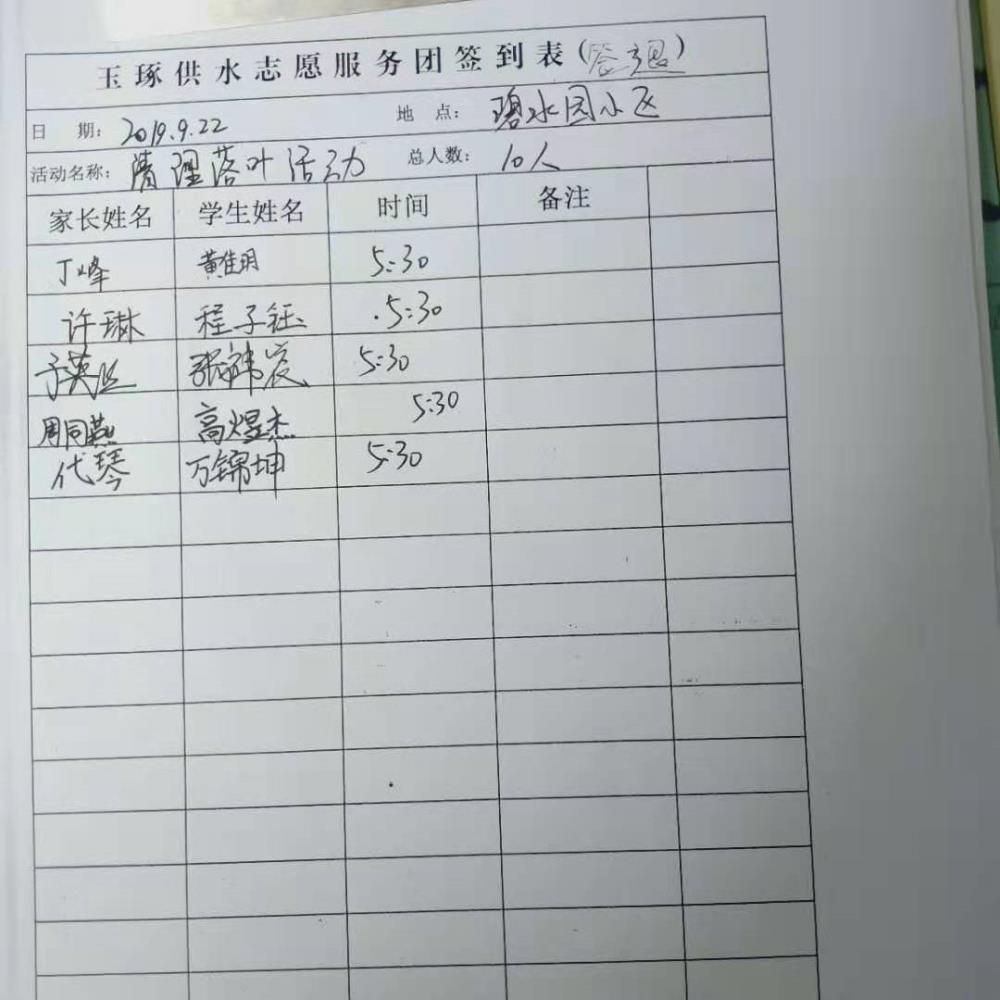 玉琢供水志愿服务团签到表(签退)
日 期: 2019.9.22 地 点: 碧水园小区
活动名称: 清理落叶活动 总人数: 10人
家长姓名 学生姓名 时间 备注
丁峰 黄佳明 5:30
许琳 程子钰 .5:30
5:30
周同燕 高煜杰 5:30
代琴 万锦坤 5:30